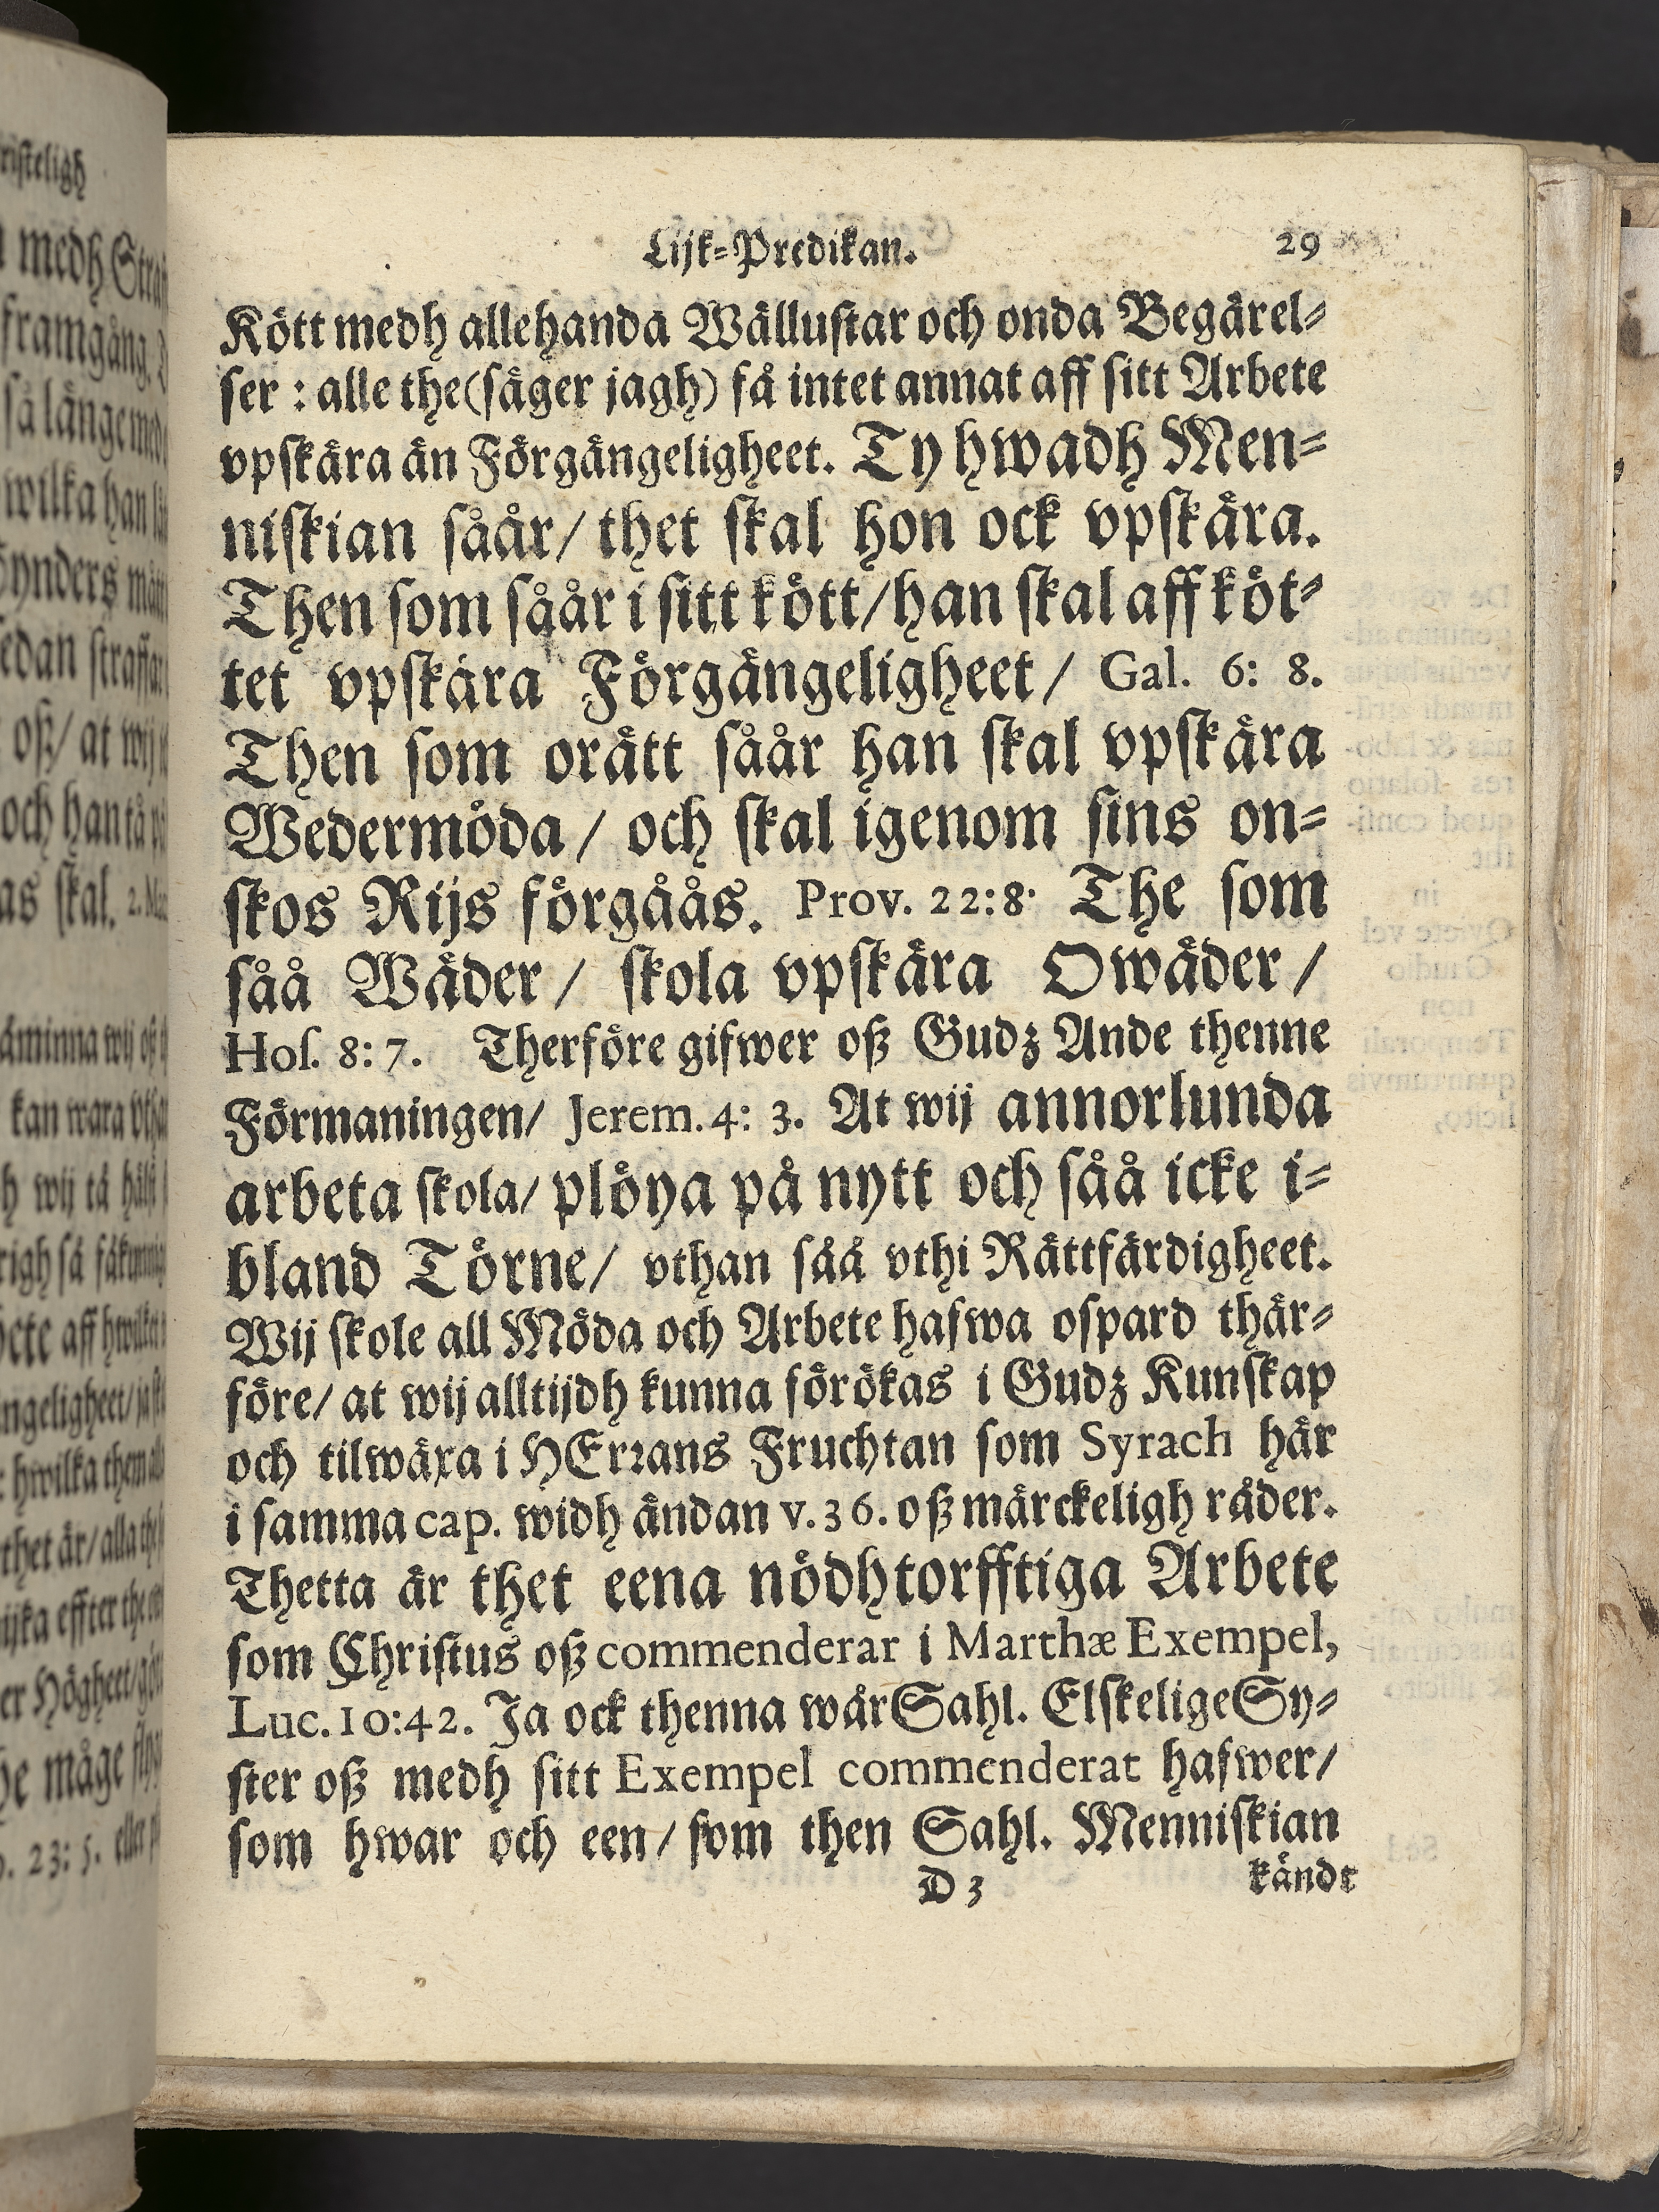 Lijk-Predikan. 29
Kött medh allehanda Wällustar och onda Begärel-
ser : alle the (säger jagh) få intet annat aff sitt Arbete
vpskära än Förgängeligheet. Ty hwadh Men-
niskian såår/ thet skal hon ock vpskära.
Then som såår i sitt kött/ han skal aff köt-
tet vpskära Förgängeligheet/ Gal. 6: 8.
Then som orätt såår han skal vpskära
Wedermöda/ och skal igenom sins on-
skos Rijs förgåås. Prov. 22:8. The som
såå Wäder/ skola vpskära Owäder/
Hos. 8: 7. Therföre gifwer oß Gudz Ande thenne
Förmaningen/ Jerem. 4: 3. At wij annorlunda
arbeta skola/ plöya på nytt och såå icke i-
bland Törne/ vthan såå vthi Rättfärdigheet.
Wij skole all Möda och Arbete hafwa ospard thär-
före/ at wij alltijdh kunna förökas i Gudz Kunskap
och tilwäxa i HErrans Fruchtan som Syrach här
i samma cap. widh ändan v. 36. oß märckeligh råder.
Thetta är thet eena nödhtorfftiga Arbete
som Christus oß commenderar i Marthæ Exempel,
Luc. 10:42. Ja ock thenna wår Sahl. Elskelige Sy-
ster oß medh sitt Exempel commenderat hafwer/
som hwar och een/ som then Sahl. Menniskian
D 3 kändt
risteligh
medh
framgång.
så länge
wilka han
edan
oß/ at wij
och han tå
as skal.
kan wara
wij tå
righ så
aff
ngeligheet/
hwilka them
thet är/ alla
effter the
Högheet/
måge
23: 5. eller